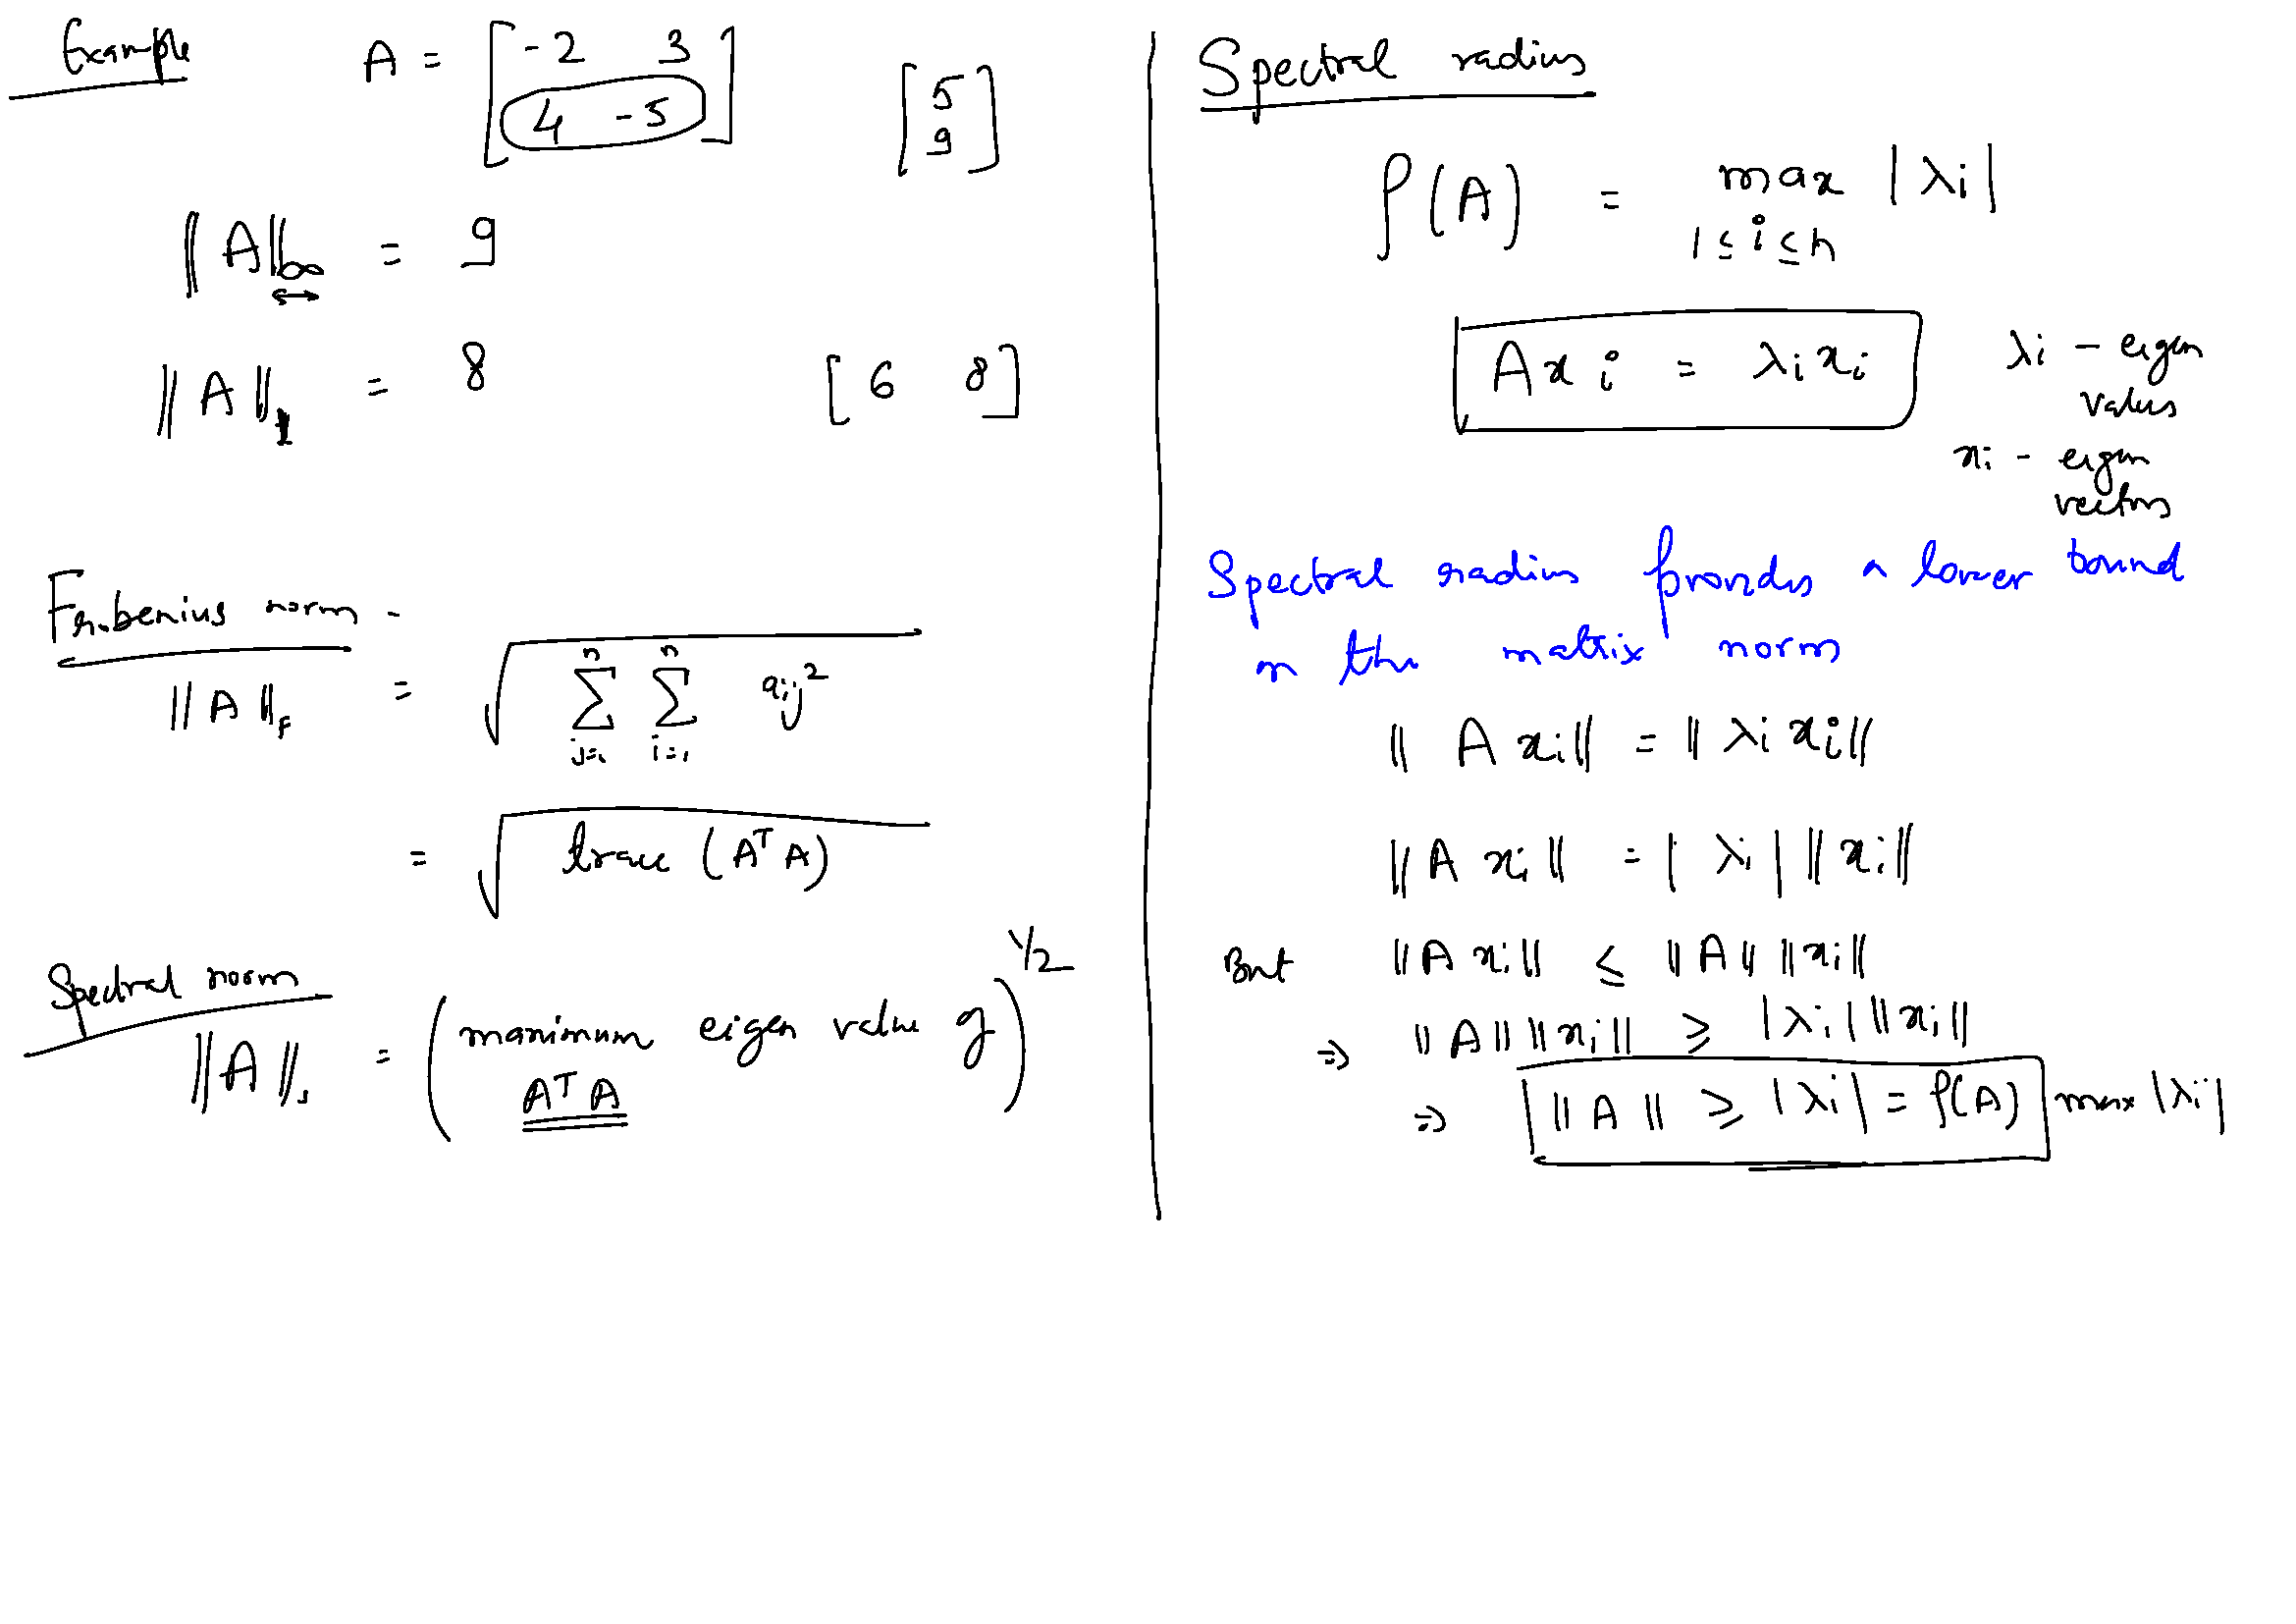 Example A = [ -2 3
4 -5 ] [ 5
9 ]
||A||∞ = 9
↔
||A||1 = 8 [ 6 8 ]
Frobenius norm -
||A||F = √( Σ_{j=1}^{n} Σ_{i=1}^{n} aij² )
= √( trace (Aᵀ A) )
Spectral norm
||A||s = ( maximum eigen value of
AᵀA )^1/2
Spectral radius
ρ(A) = max |λi|
1 ≤ i ≤ n
A xi = λi xi
λi - eigen
values
xi - eigen
vectors
Spectral radius provides a lower bound
on the matrix norm
|| A xi|| = || λi xi||
||A xi|| = | λi | ||xi||
But ||A xi|| ≤ ||A|| ||xi||
⇒ ||A|| ||xi|| ≥ |λi| ||xi||
⇒ ||A|| ≥ |λi| = ρ(A) max |λi|